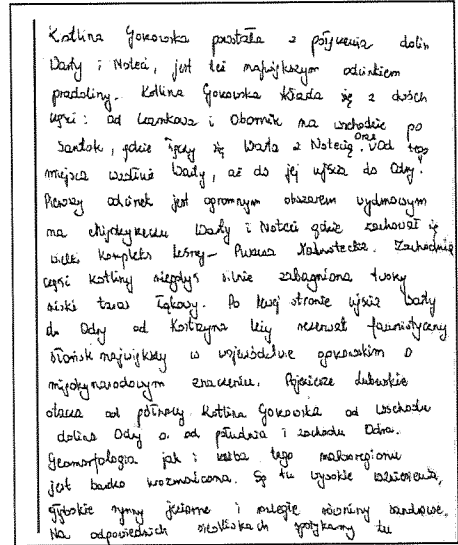 Kotlina Gorzowska powstała z połączenia dolin
Warty i Noteci, jest też największym odcinkiem
pradoliny. Kotlina Gorzowska składa się z dwóch
części: od Czarnkowa i Obornik na wschodzie po
Santok, gdzie łączy się Warta z Notecią oraz od tego
miejsca wzdłuż Warty, aż do jej ujścia do Odry.
Pierwszy odcinek jest ogromnym obszarem wydmowym
na międzyrzeczu Warty i Noteci gdzie zachował się
wielki kompleks leśny - Puszcza Nadnotecka. Zachodnią
część kotliny niegdyś silnie zabagnioną tworzy
niski taras łąkowy. Po lewej stronie ujścia Warty
do Odry od Kostrzyna leży rezerwat faunistyczny
Słońsk największy w województwie gorzowskim o
międzynarodowym znaczeniu. Pojezierze Lubuskie
otacza od północy Kotlina Gorzowska od wschodu
dolina Odry a od południa i zachodu Odra.
Geomorfologia jak i rzeźba tego makroregionu
jest bardzo urozmaicona. Są tu wysokie wzniesienia,
głębokie rynny jeziorne i rozległe równiny sandrowe.
Na odpowiednich siedliskach spotykamy tu